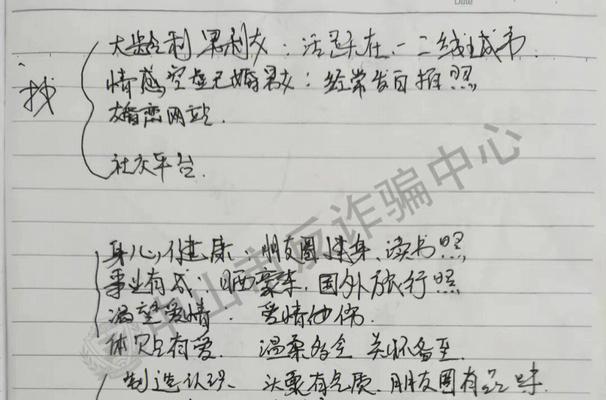 找
大龄剩男剩女：活跃在一二线城市.
情感空虚已婚男女：经常发自拍照
婚恋网站.
社交平台.
身心健康 朋友圈健身、读书照
事业有成：晒豪车.国外旅行照
渴望爱情： 爱情
体贴有爱. 温柔多金 关怀备至.
制造认识、 头像有气质、朋友圈有品味.
中山市反诈骗中心